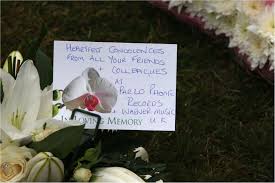 HEARTFELT CONDOLENCES
FROM ALL YOUR FRIENDS
+ COLLEAGUES
AT
PARLOPHONE
RECORDS
+ WARNER MUSIC
U.K
IN LOVING MEMORY